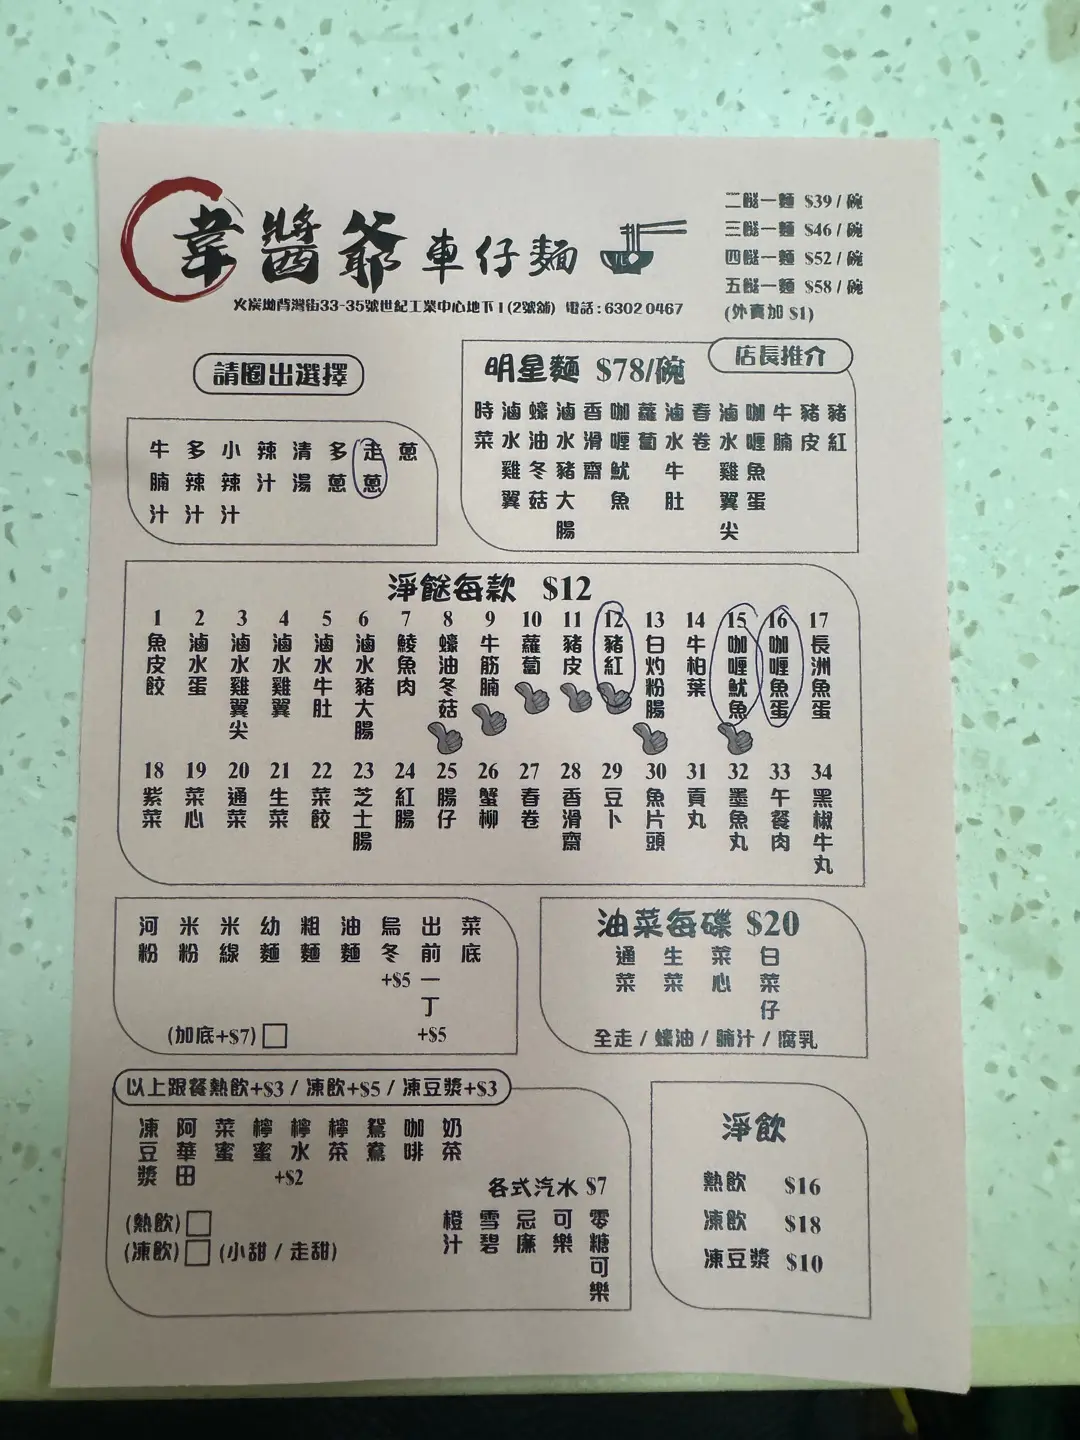 韋醬爺車仔麵
火炭坳背灣街33-35號世紀工業中心地下1(2號舖) 電話:6302 0467
二餸一麵 $39/碗
三餸一麵 $46/碗
四餸一麵 $52/碗
五餸一麵 $58/碗
(外賣加 $1)
請圈出選擇
牛腩汁
多辣汁
小辣汁
辣汁
清湯
多蔥
走蔥
蔥
明星麵 $78/碗
店長推介
時菜
滷水雞翼
蠔油冬菇
滷水豬大腸
香滑齋
咖喱魷魚
蘿蔔
滷水牛肚
春卷
滷水雞翼尖
咖喱魚蛋
牛腩
豬皮
豬紅
淨餸每款 $12
1 魚皮餃
2 滷水蛋
3 滷水雞翼尖
4 滷水雞翼
5 滷水牛肚
6 滷水豬大腸
7 鯪魚肉
8 蠔油冬菇
9 牛筋腩
10 蘿蔔
11 豬皮
12 豬紅
13 白灼粉腸
14 牛柏葉
15 咖喱魷魚
16 咖喱魚蛋
17 長洲魚蛋
18 紫菜
19 菜心
20 通菜
21 生菜
22 菜餃
23 芝士腸
24 紅腸
25 腸仔
26 蟹柳
27 春卷
28 香滑齋
29 豆卜
30 魚片頭
31 貢丸
32 墨魚丸
33 午餐肉
34 黑椒牛丸
河粉
米粉
米線
幼麵
粗麵
油麵
烏冬 +$5
出前一丁 +$5
菜底
(加底+$7)
油菜每碟 $20
通菜
生菜
菜心
白菜仔
全走/蠔油/腩汁/腐乳
以上跟餐熱飲+$3/凍飲+$5/凍豆漿+$3
凍豆漿
阿華田
菜蜜
檸蜜 +$2
檸水
檸茶
鴛鴦
咖啡
奶茶
(熱飲)
(凍飲) (小甜/走甜)
各式汽水 $7
橙汁
雪碧
忌廉
可樂
零糖可樂
淨飲
熱飲 $16
凍飲 $18
凍豆漿 $10